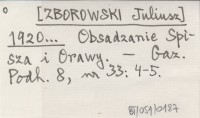 [ZBOROWSKI Juliusz]
1920... Obsadzanie Spi-
sza i Orawy. – Gaz.
Podh. 8, nr 33: 4-5.
BJ/051/0187